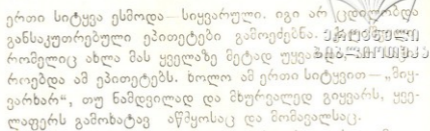 ერთი სიტყვა ესმოდა—სიყვარული. იგი არ ცდილობდა
განსაკუთრებული ეპითეტები გამოეძებნა.
რომელიც ახლა მას ყველაზე მეტად უყვარს,
როებდა ამ ეპითეტებს. ხოლო ამ ერთი სიტყვით—„მიყ-
ვარხარ“, თუ ნამდვილად და მხურვალედ გიყვარს, ყვე-
ლაფერს გამოხატავ აწმყოსაც და მომავალსაც.